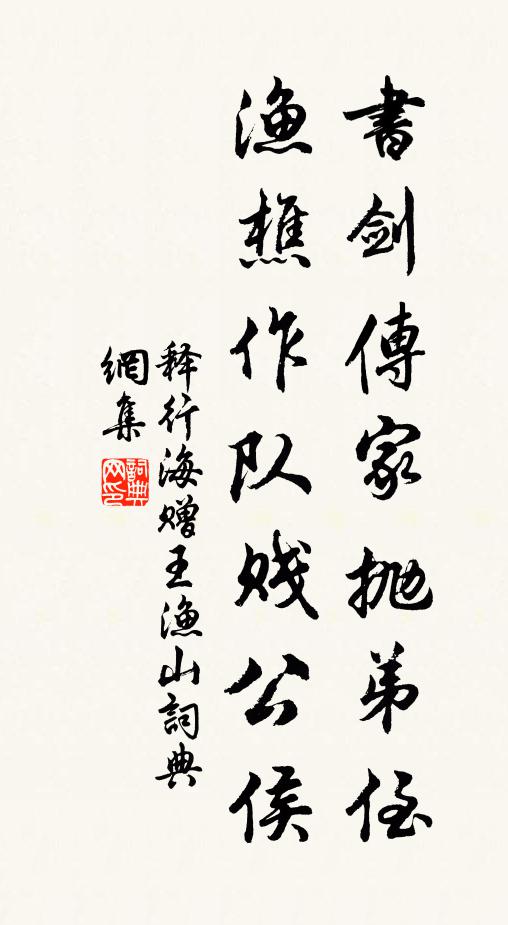 書劍傳家抛弟侄
漁樵作队贱公侯
释行海赠王漁山詞典
網集
詞典
网印